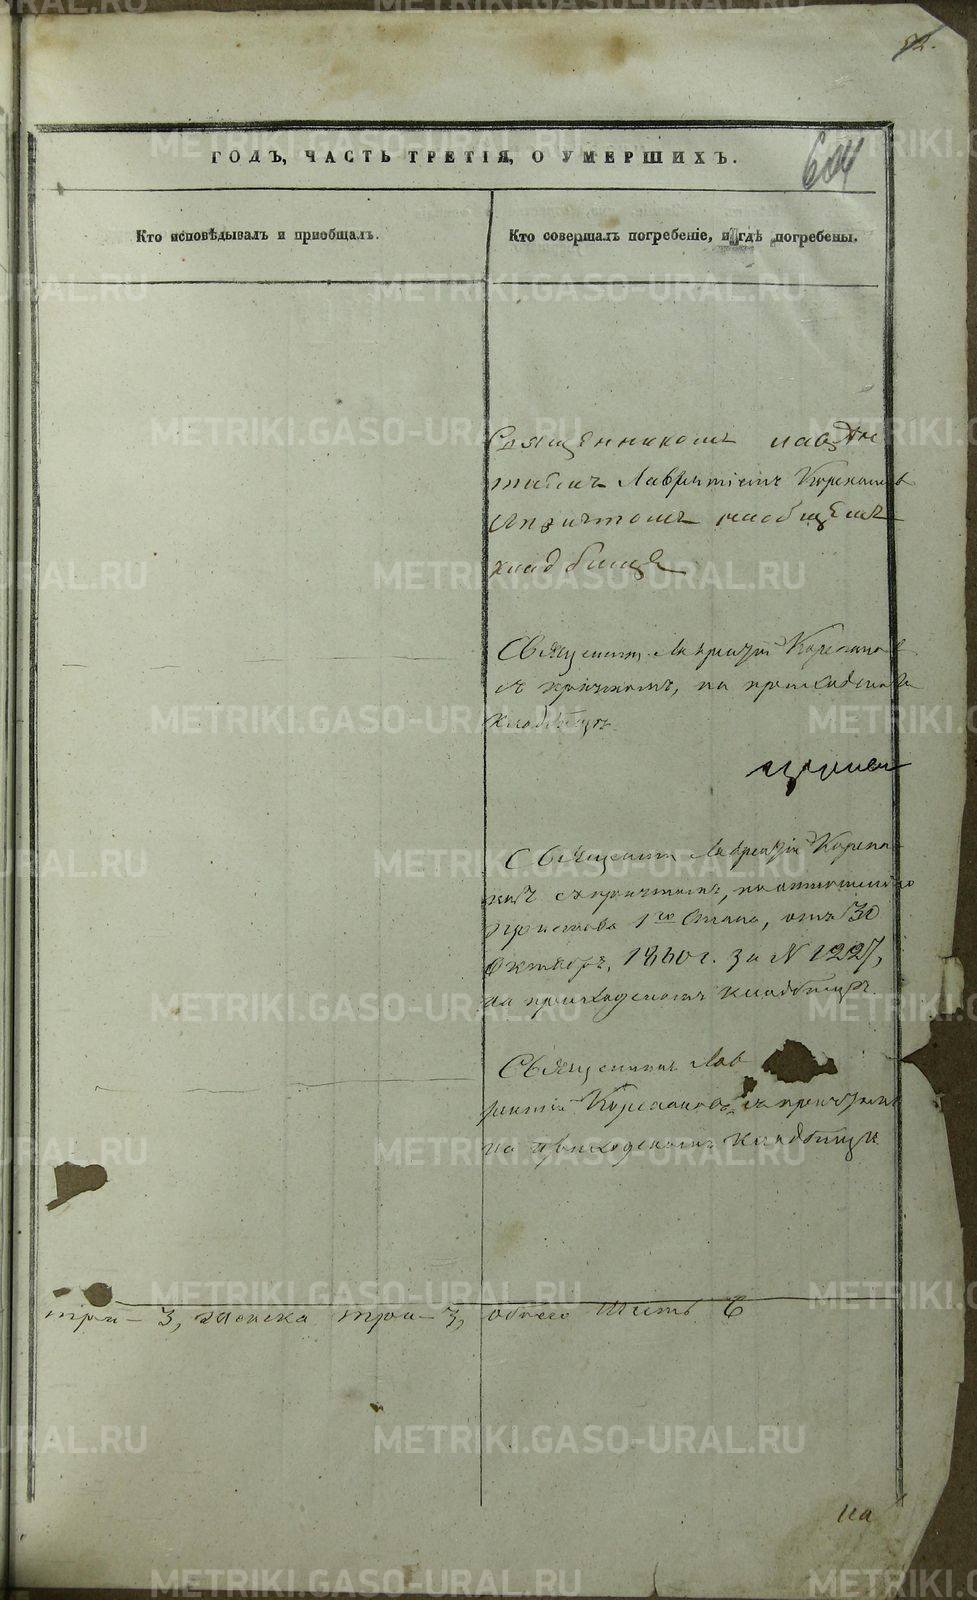 52.
604
ГОДЪ, ЧАСТЬ ТРЕТІЯ, О УМЕРШИХЪ.
Кто исповѣдывалъ и пріобщалъ.
Кто совершалъ погребеніе, и гдѣ погребены.
Священникомъ
Лаврентіемъ Корепанов
съ причтомъ на общемъ
кладбище
Священникъ Лаврентій Корепанов
съ причтомъ, на приходскомъ
кладбищѣ
Священникъ Лаврентій Корепа-
новъ съ причтомъ, по отношенію
пристава 1го Стана, отъ 30
Октября, 1860 г. за N 1227,
на приходскомъ кладбищѣ
Священникъ Лав
рентій Корепановъ съ причтомъ
на приходскомъ кладбищѣ
три - 3, женска три - 3, обоего шесть 6
на
METRIKI.GASO-URAL.RU